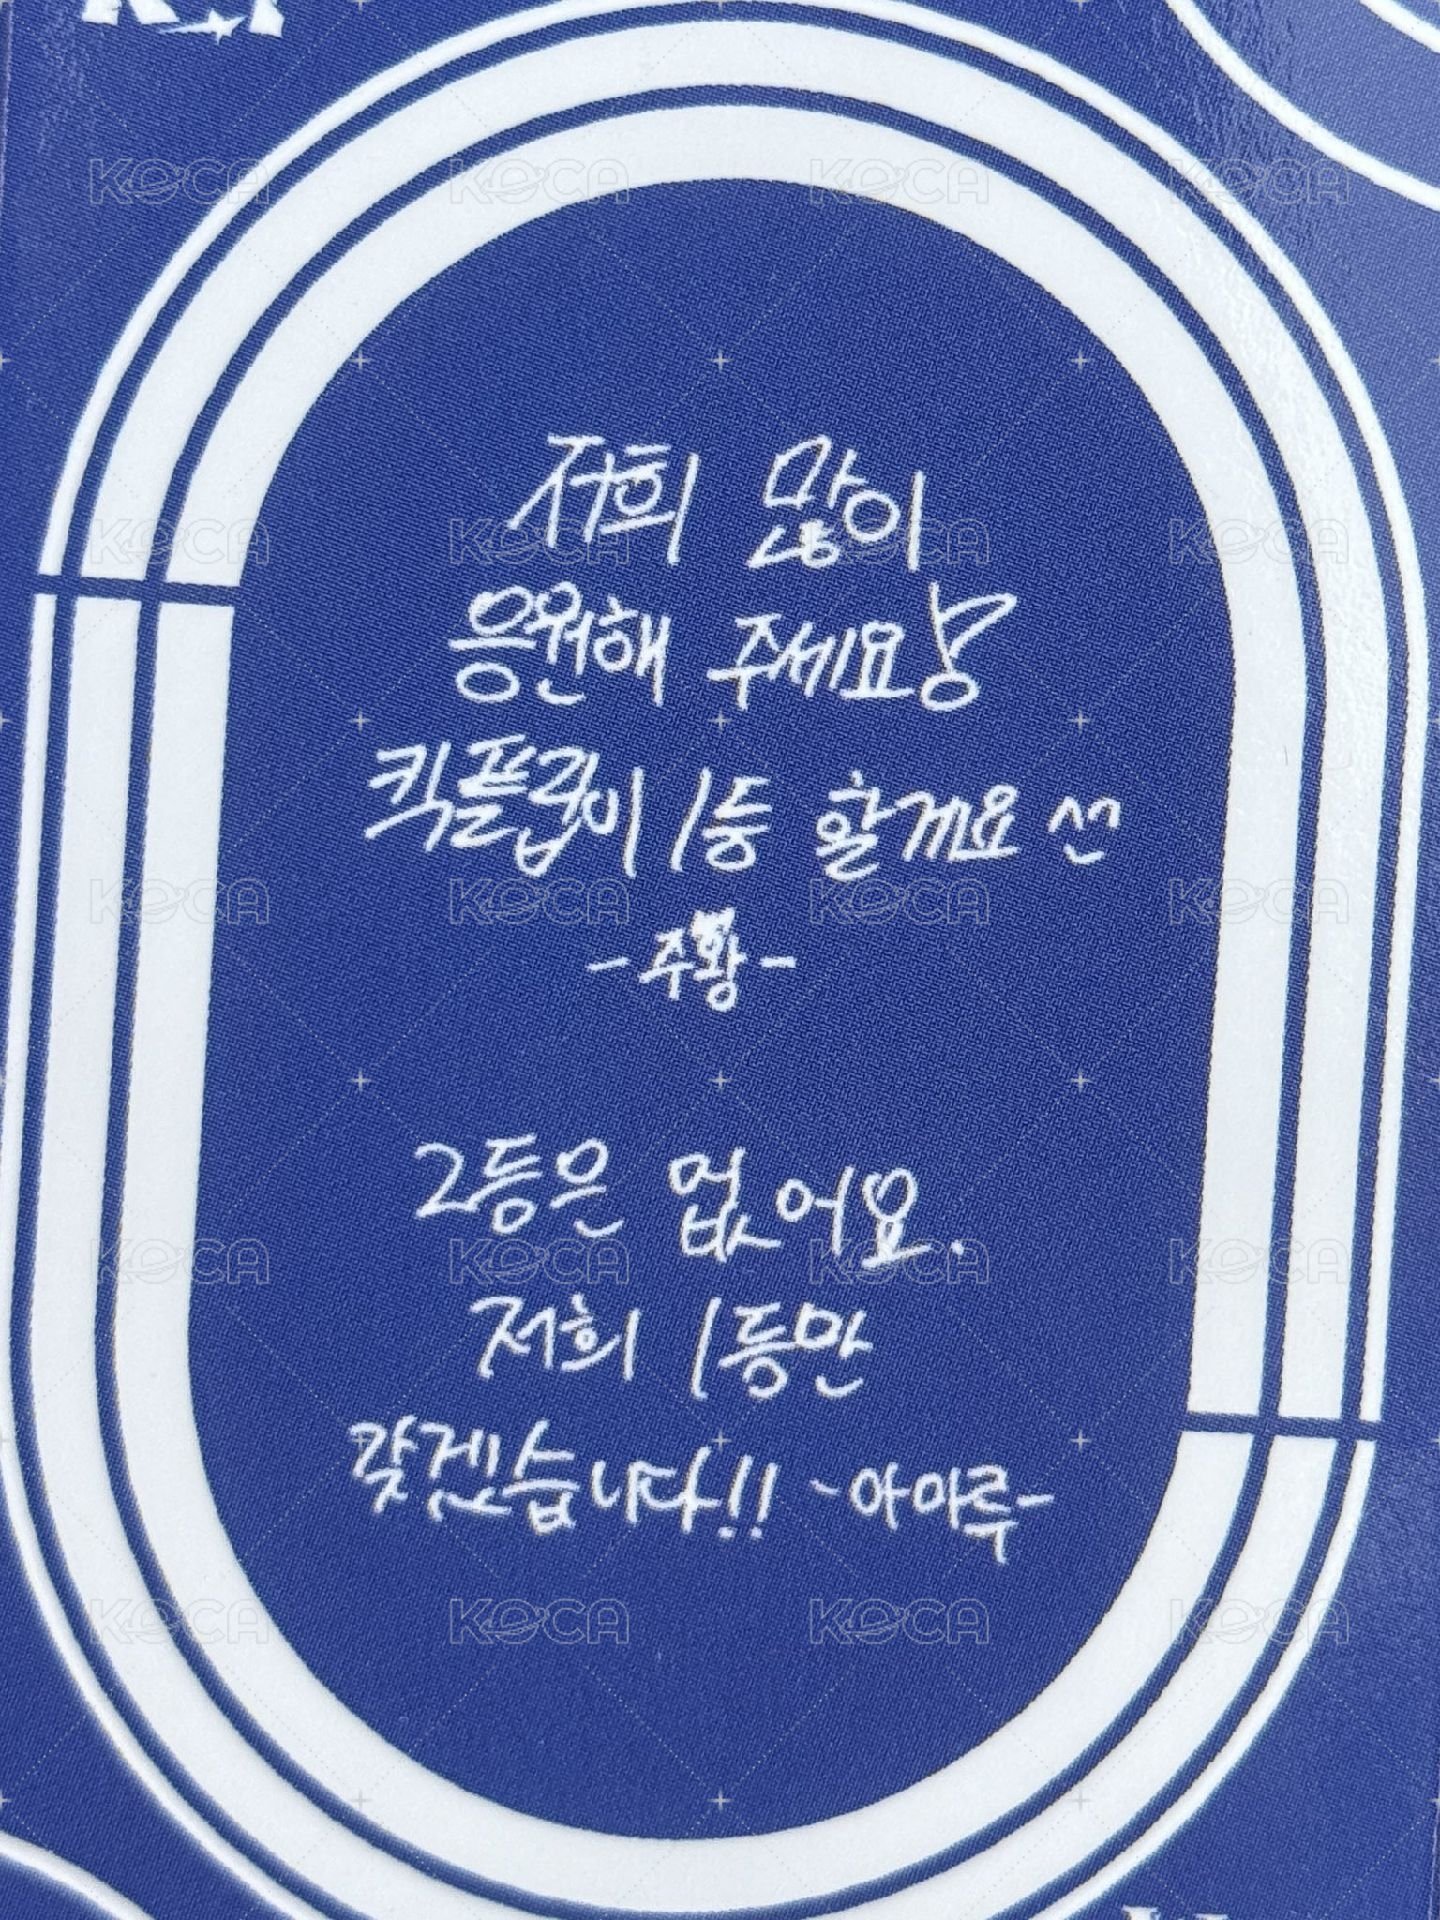 저희 많이
응원해 주세요
킥플립이 1등 할게요 선
-주황-
2등은 없어요.
저희 1등만
갖겠습니다!! -아마루-